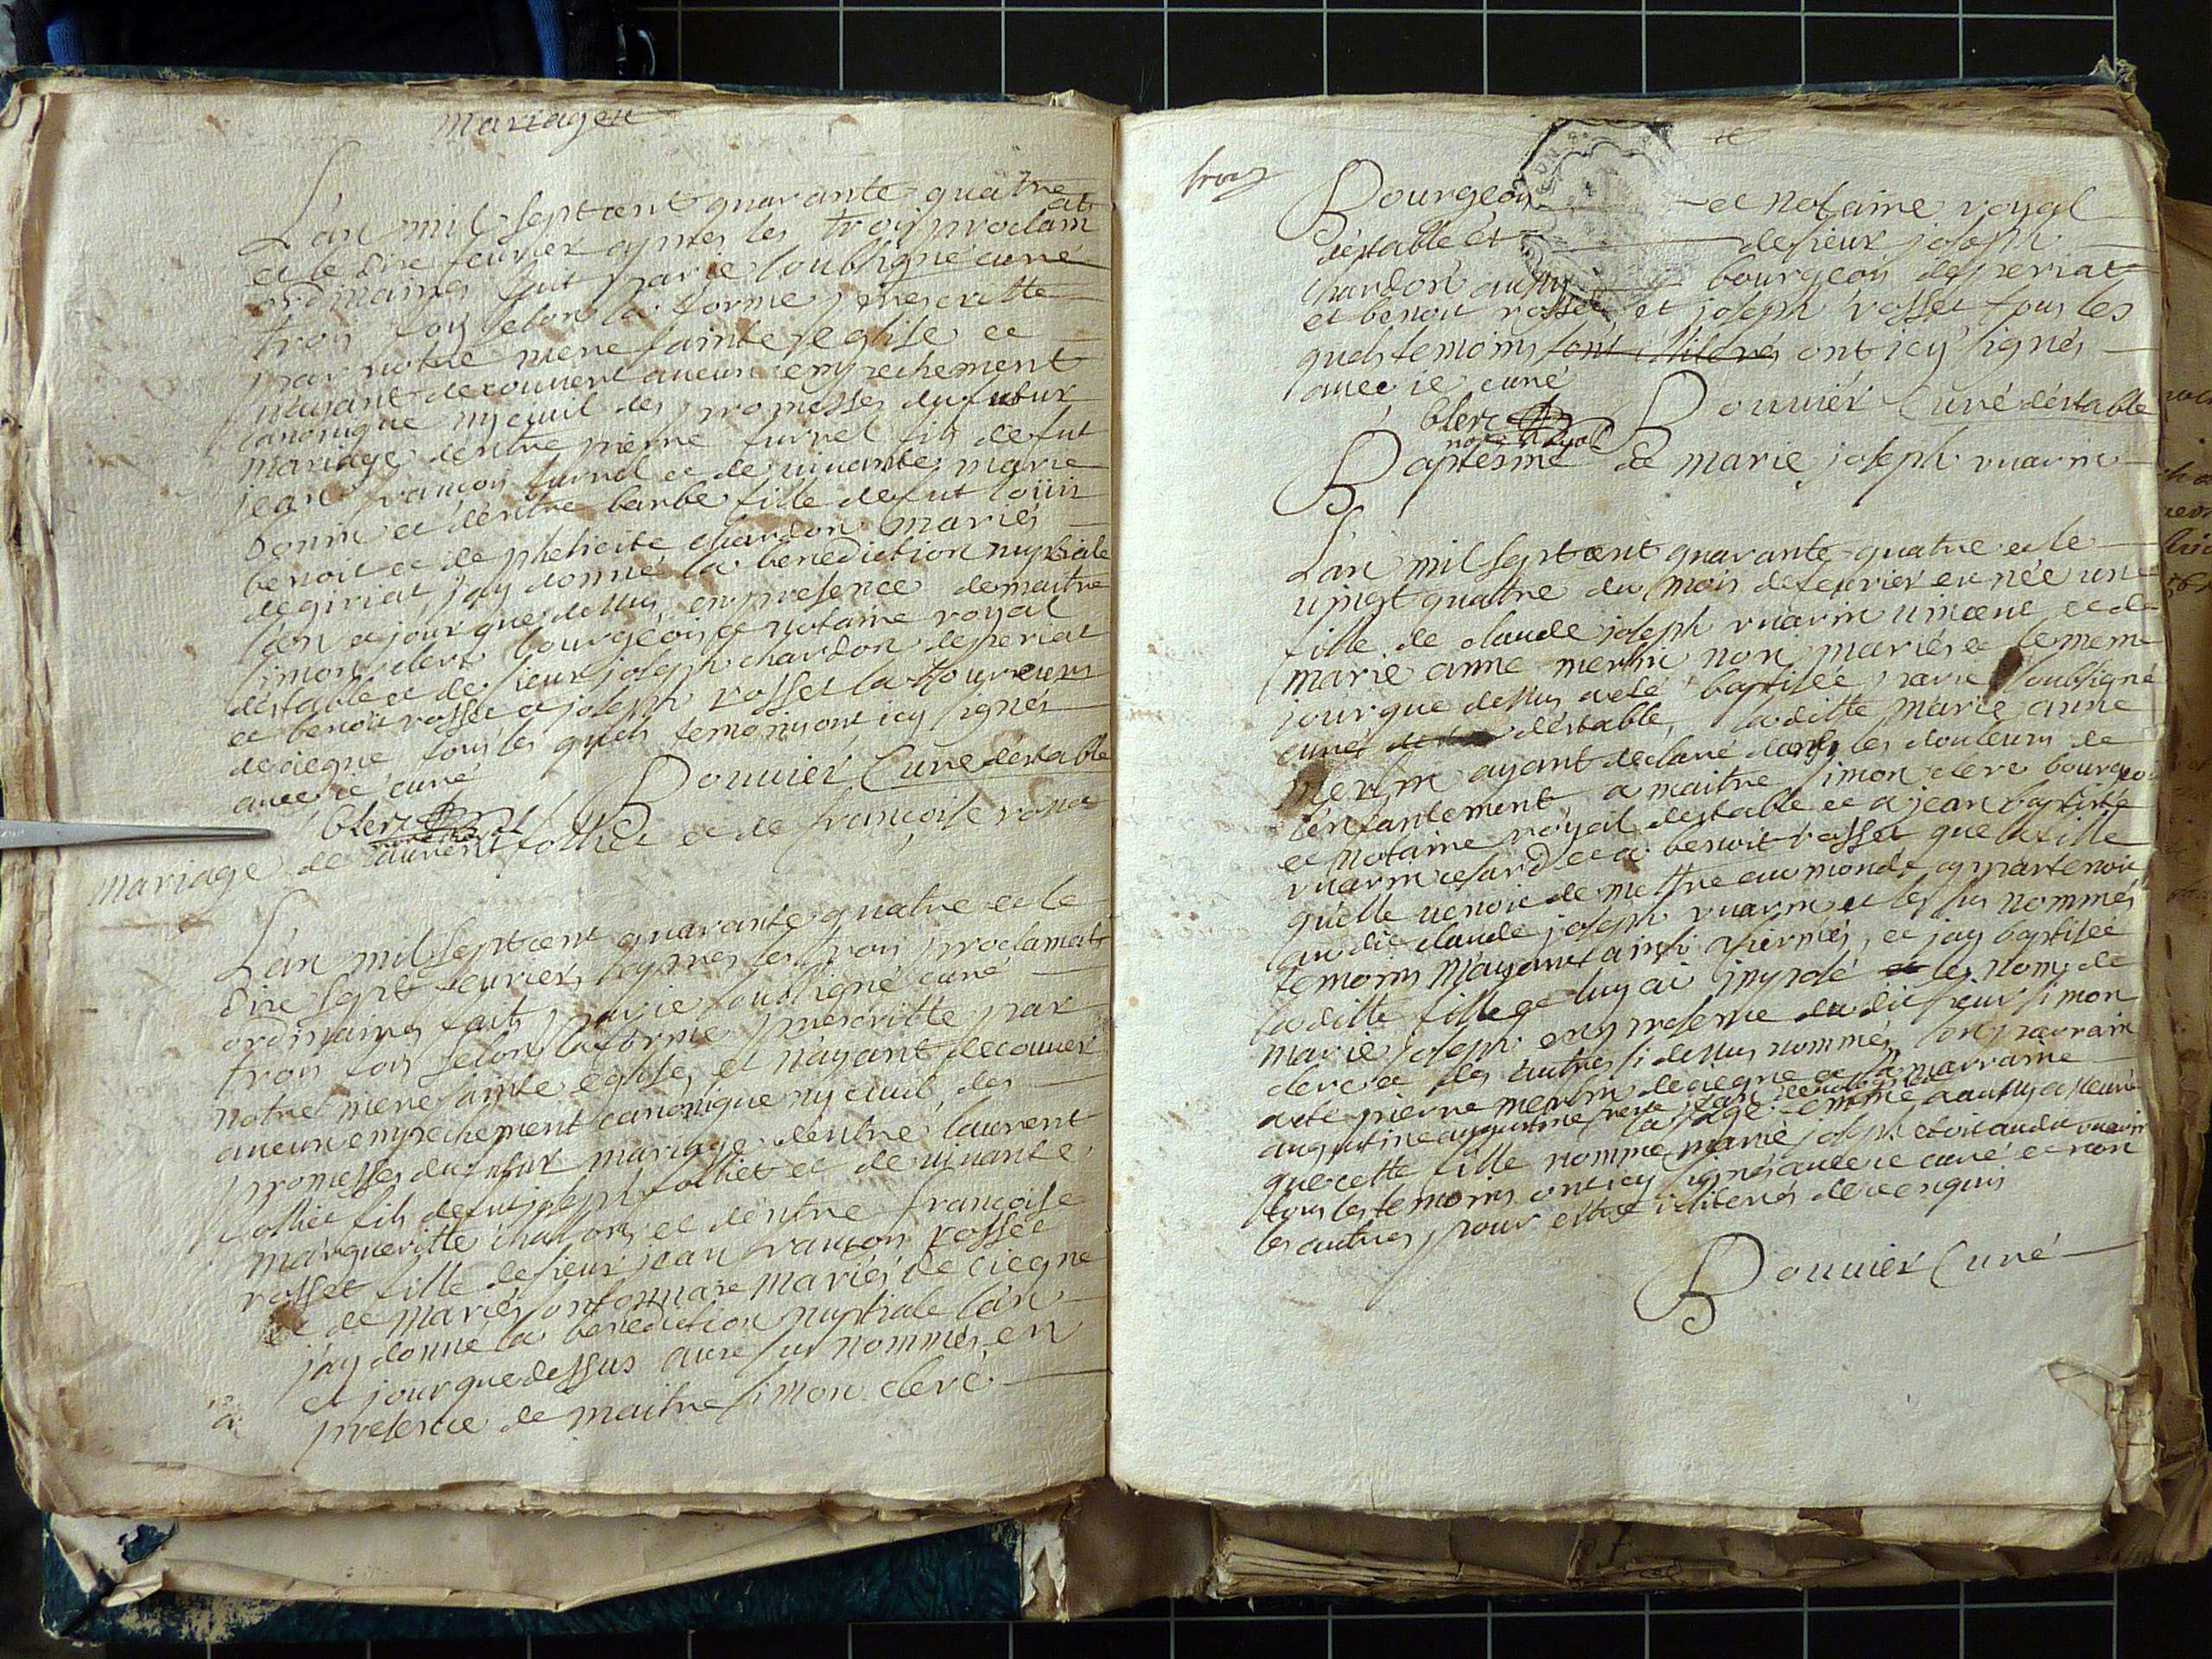 mariages
L'an mil sept cent quarante quatre
et le dixe feurier apres les trois proclamat
ordinaires fait par ie soubsigné curé
trois fois selon la forme prescritte
par notre mere sainte eglise et
n'ayant decouuert aucun empechement
canonique ny ciuil des promesses du futur
mariage d'entre pierre furnel fils de fut
jean francois furnel et de uiuante marie
bonin et d'entre barbe fille de fut loüis
benoit et de phelicite chardon mariés
de giriat, j'ay donné la benediction nuptiale
l'an et jour que dessus, en presence de maitre
simon clerc bourgeois et notaire royal
d'estable et de sieur joseph chardon de periat
et benoit rosset et joseph rosset laboureurs
de ciegne tous les quels temoins ont icy signés
auec ie curé
Clerc Bouuier Curé d'estable
not royal
mariage de laurent folliet et de françoise rosset
L'an mil sept cent quarante quatre et le
dixe sept feurier, apres les trois proclamat
ordinaires fait par ie soubsigné curé
trois fois selon la forme prescritte par
notre mere sainte eglise, et n'ayant decouuer
aucun empechement canonique ny ciuil, des
promesses du futur mariage d'entre laurent
folliet fils de fut joseph folliet et de uiuante
margueritte chalon, et d'entre françoise
rosset fille de sieur jean francois rosset
et de mariés de ciegne
j'ay donné la benediction nuptiale l'an
et jour que dessus aux sus nommés, en
presence de maitre simon clerc
trois
Bourgeois et notaire royal
d'estable et de sieur joseph
chardon aussy bourgeois de periat
et benoit rosset et joseph rosset tous les
quels temoins sont illiterés ont icy signés
auec ie curé
Clerc Bouuier Curé d'estable
not royal
Baptesme de marie joseph ruarin
L'an mil sept cent quarante quatre et le
uingt quatre du mois de feurier est née une
fille de claude joseph ruarin uincent et de
marie anne merlin non mariés et le meme
jour que dessus a eté baptisée par ie soubsigné
curé d'estable, la ditte marie anne
merlin ayant declaré dans les douleurs de
l'enfantement a maitre simon clerc bourgeoi
et notaire royal d'estable et a jean baptiste
ruarin et a benoit rosset que la fille
qu'elle uenoit de mettre au monde appartenoit
au dit claude joseph ruarin et les sus nommés
temoins m'ayant ainsi afermés, et j'ay baptisée
la ditte fille et luy ai imposé les noms de
marie joseph en presence du dit sieur simon
clerc et des autres si dessus nommés son parrain
a eté pierre merlin de ciegne et la marraine
augustine
que cette fille nommé marie joseph etoit au du ruarin
tous les temoins ont icy signés auec ie curé et non
les autres pour estre illiterés de ce enquis
Bouuier Curé